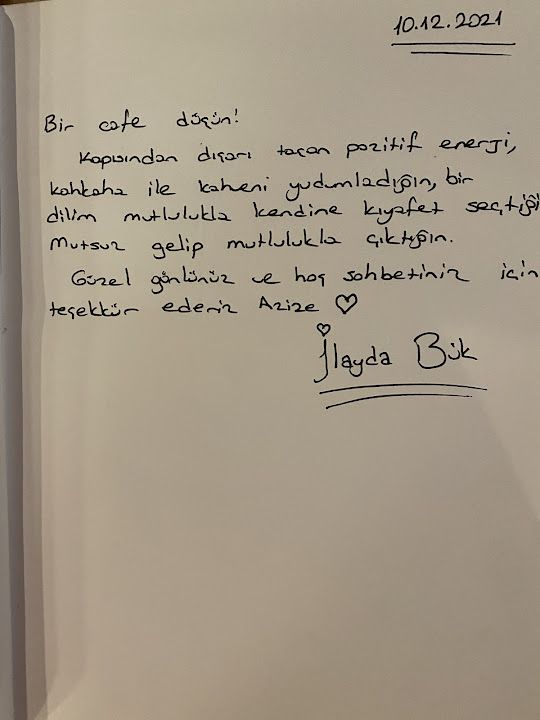 10.12.2021
Bir cafe düşün!
Kapısından dışarı taşan pozitif enerji,
kahkaha ile kahveni yudumladığın, bir
dilim mutlulukla kendine kıyafet seçtiği
Mutsuz gelip mutlulukla çıktığın.
Güzel gönlünüz ve hoş sohbetiniz için
teşekkür ederiz Azize ♡
İlayda Bük